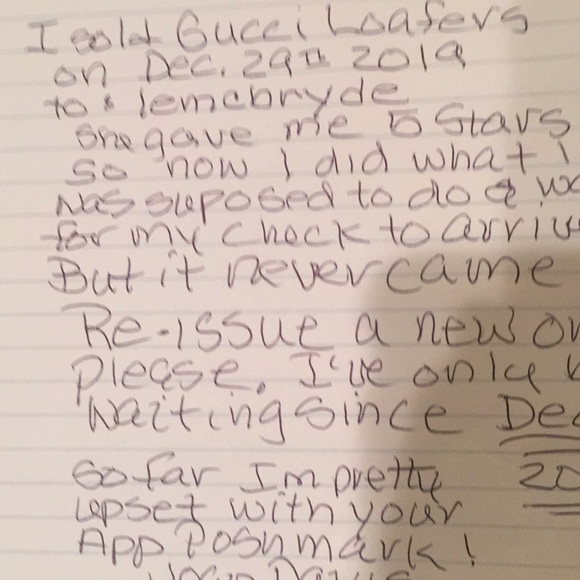 I sold Gucci Loafers
on Dec. 29th 2019
to: lemcbryde
she gave me 5 Stars
so now I did what I
was suposed to do &
for my check to
But it never came
Re-issue a new
please. I've only
waiting since
so far Im pretty 20
upset with your
App Poshmark!